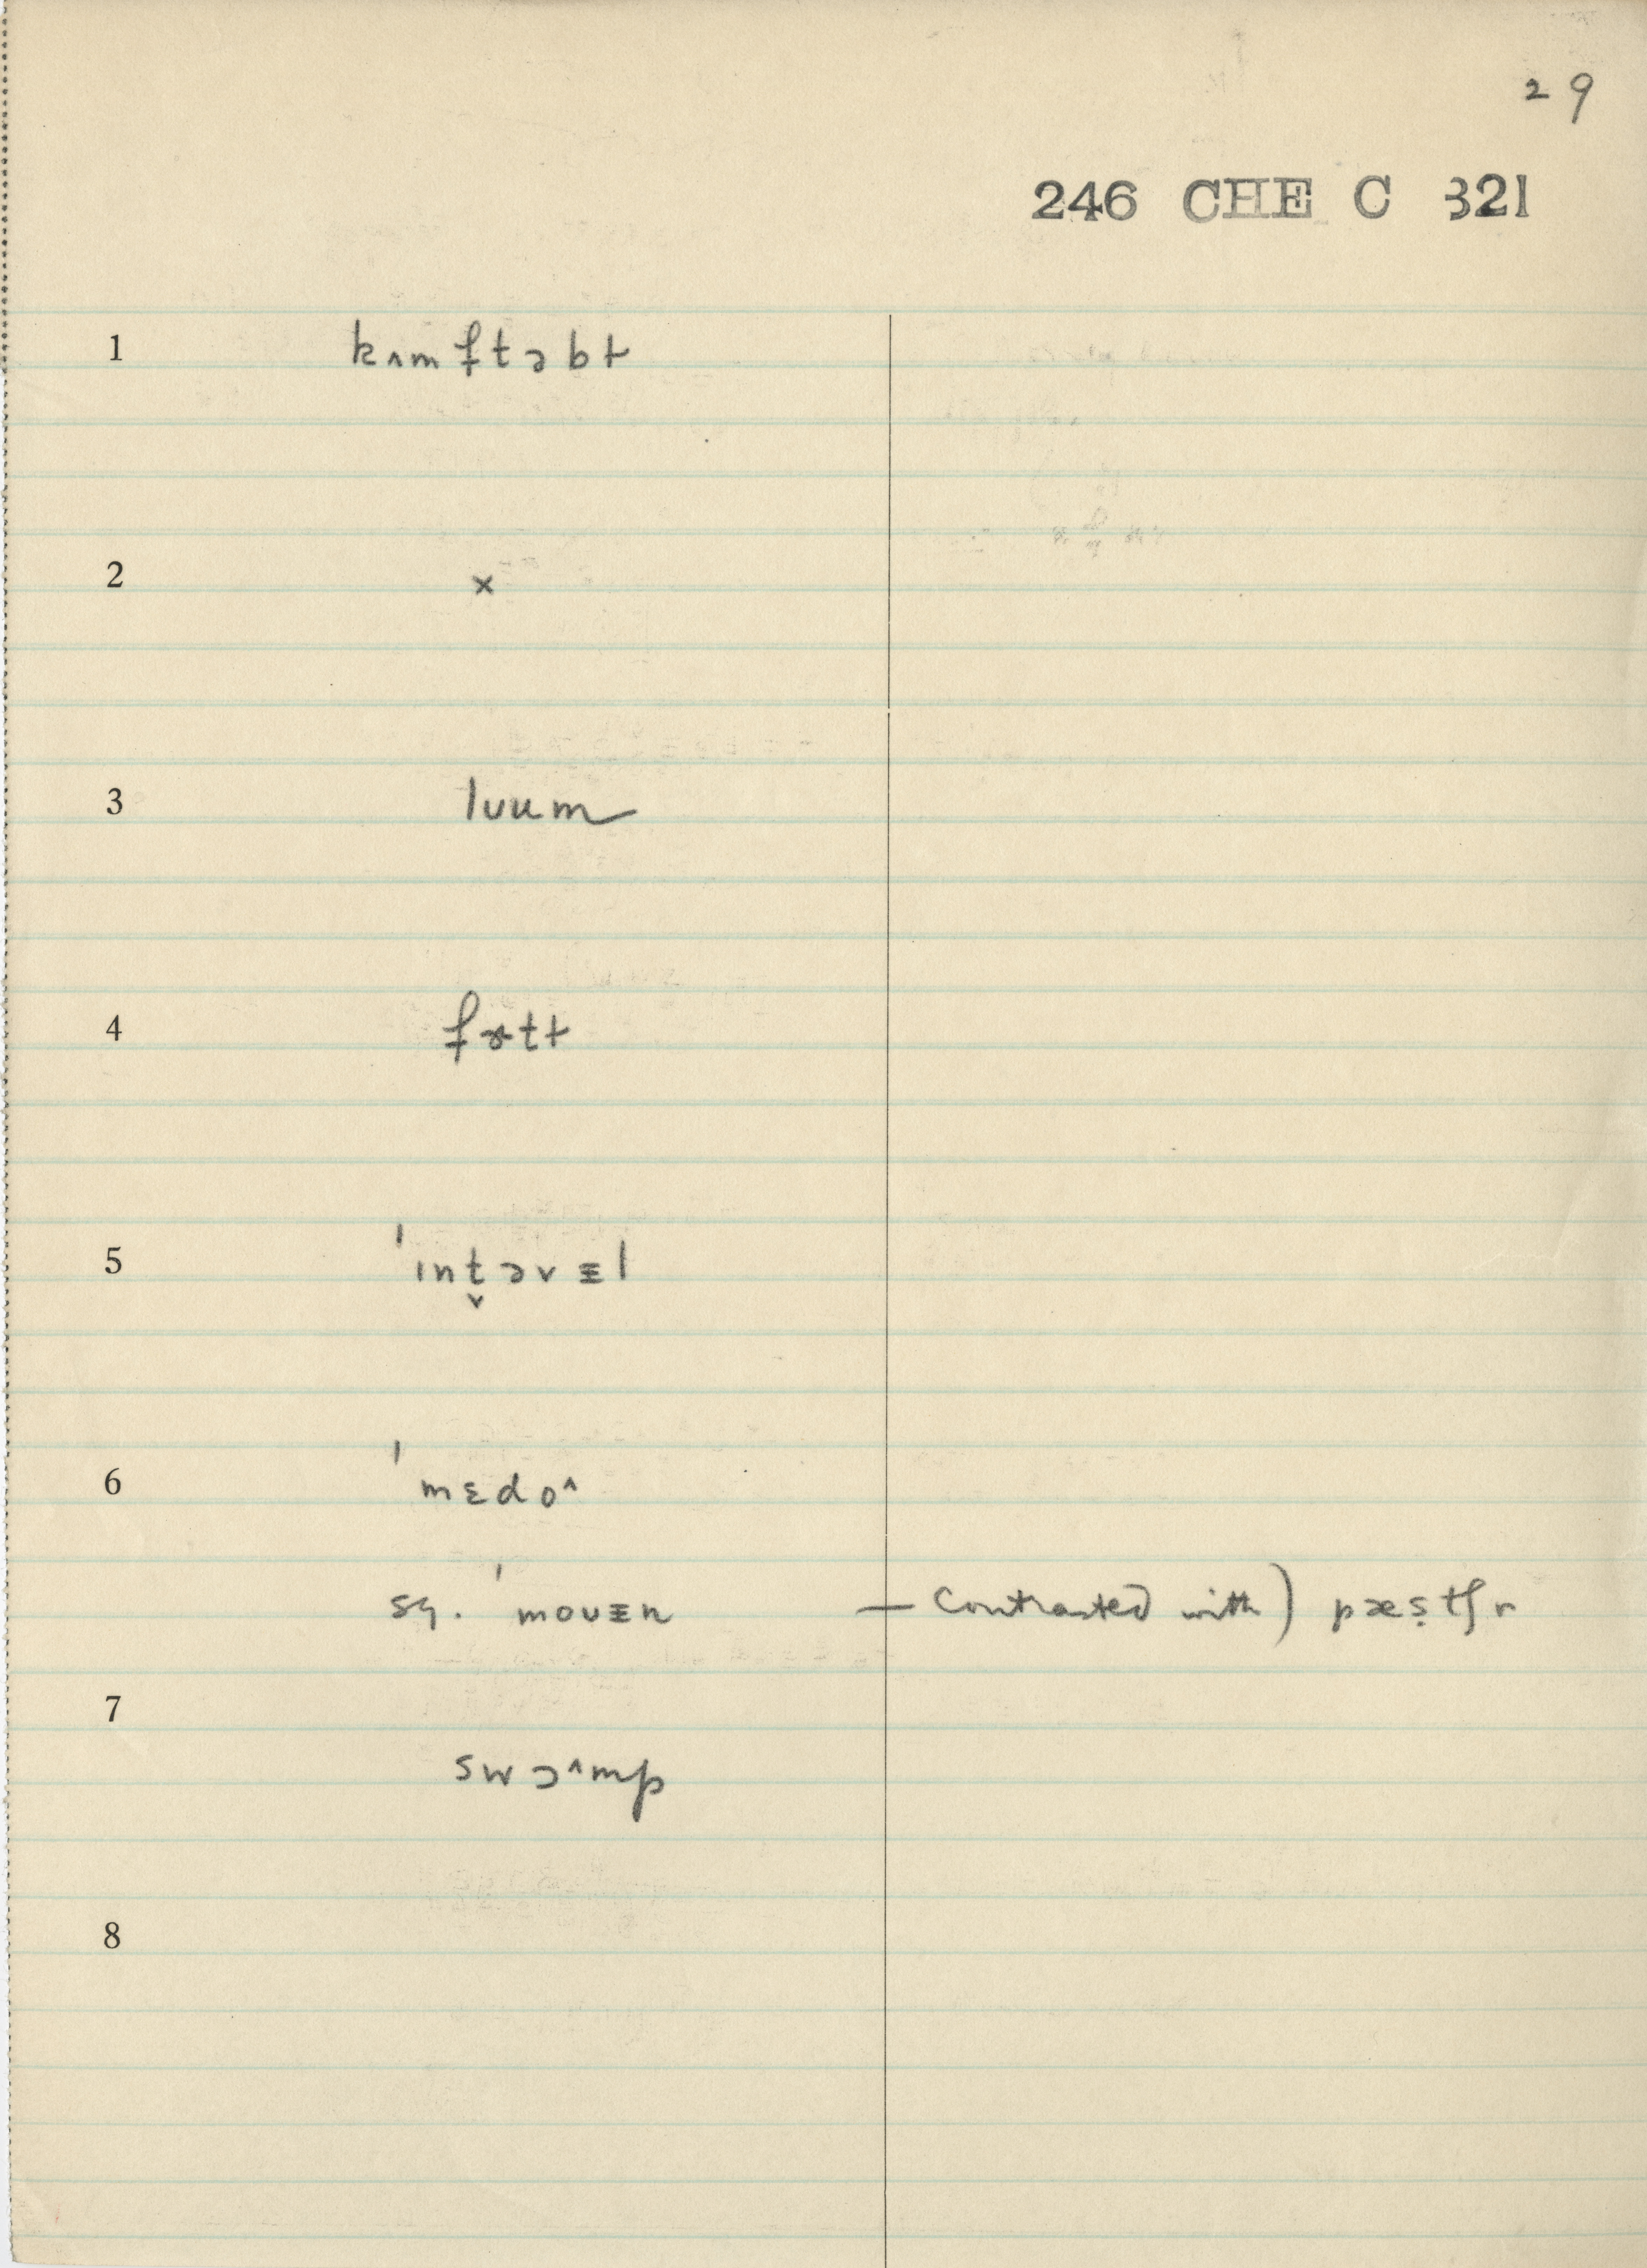 29
246 CHE C 321
1 kʌmftəbɫ
2 ×
3 lʋum
4 fɤtɫ
5 ˈɪnt̬əvɪl
6 ˈmɛdoˆ
sq. ˈmoʋɪn — contrasted with) pæṣtʃɚ
7
swɔˆmp
8